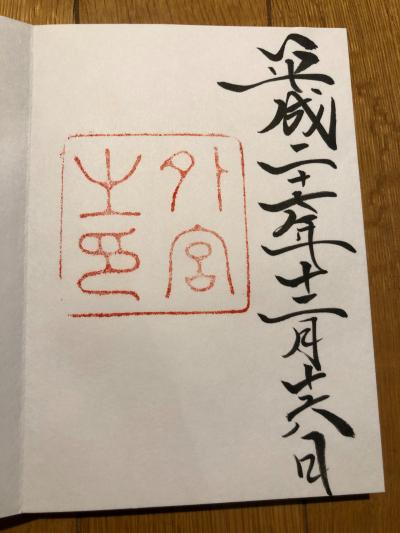 平成二十六年十二月十六日
外宮
之印